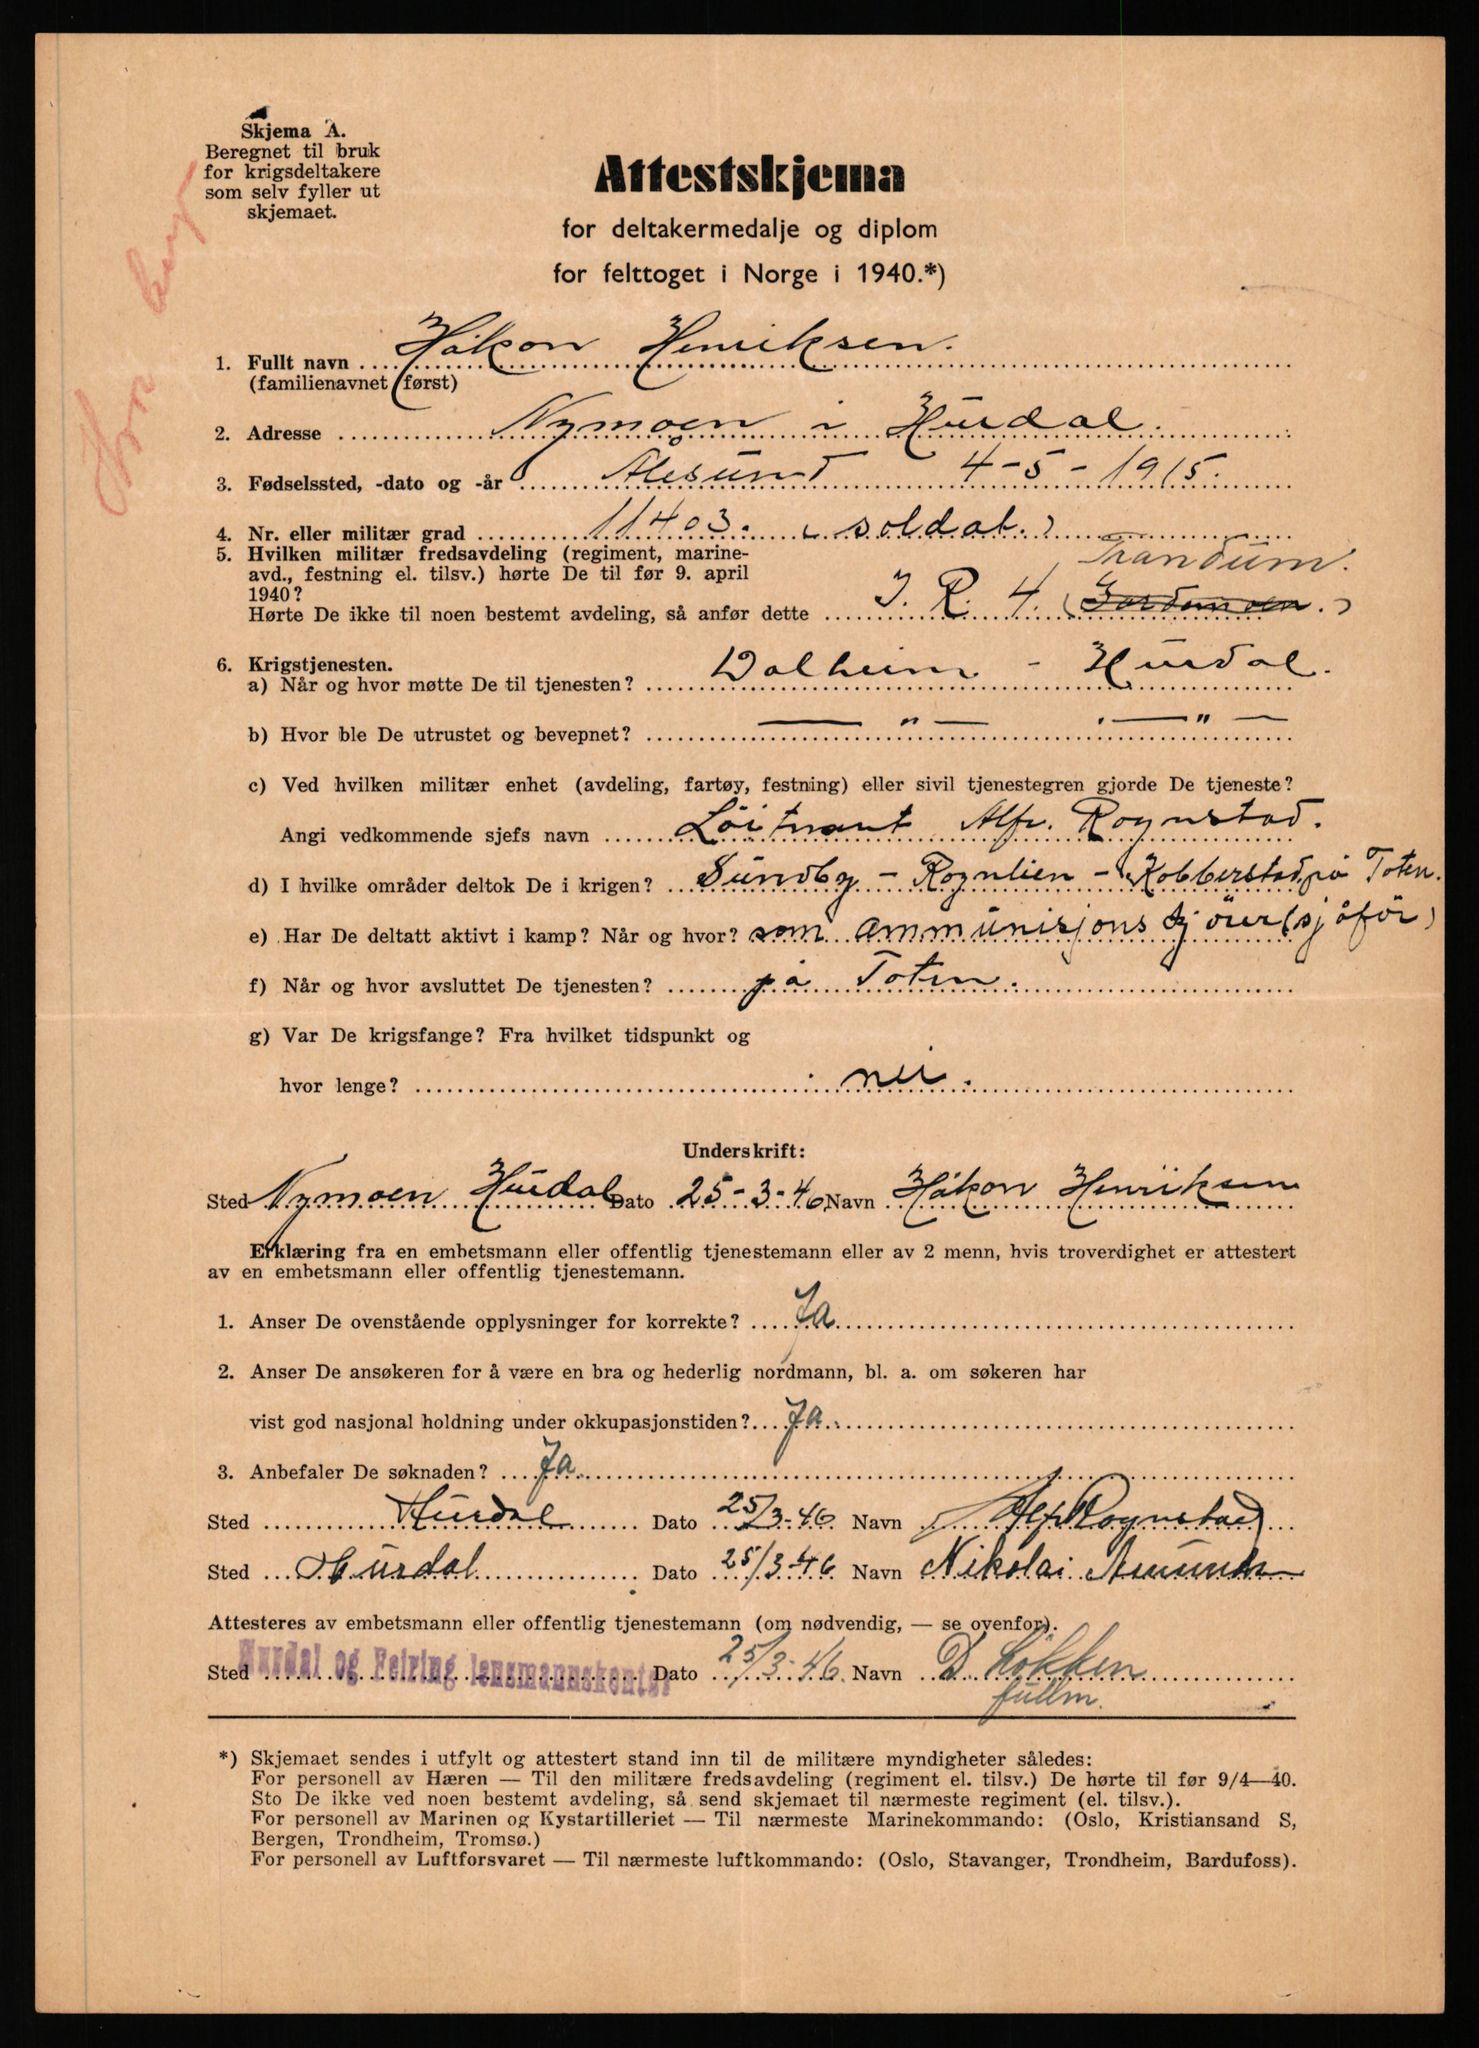 Skjema A.
Beregnet til bruk
for krigsdeltakere
som selv fyller ut
skjemaet.
Attestskjema
for deltakermedalje og diplom
for felttoget i Norge i 1940.*)
1. Fullt navn Håkon Henriksen.
(familienavnet først)
2. Adresse Nymoen i Hurdal.
3. Fødselssted, -dato og -år Ålesund 4-5-1915.
4. Nr. eller militær grad 11403. (soldat.)
5. Hvilken militær fredsavdeling (regiment, marine-
avd., festning el. tilsv.) hørte De til før 9. april
1940? Trandum.
Hørte De ikke til noen bestemt avdeling, så anfør dette I. R. 4. (Gardemoen.)
6. Krigstjenesten.
a) Når og hvor møtte De til tjenesten? Dalheim - Hurdal.
b) Hvor ble De utrustet og bevepnet? — „ — — „ —
c) Ved hvilken militær enhet (avdeling, fartøy, festning) eller sivil tjenestegren gjorde De tjeneste?
Angi vedkommende sjefs navn Löitnant Alfr. Rognstad.
d) I hvilke områder deltok De i krigen? Sundby - Rognlien - Kobberstad på Toten.
e) Har De deltatt aktivt i kamp? Når og hvor? som ammunisjons kjörer (sjåför)
f) Når og hvor avsluttet De tjenesten? på Toten.
g) Var De krigsfange? Fra hvilket tidspunkt og
hvor lenge? nei.
Underskrift:
Sted Nymoen Hurdal Dato 25-3-46 Navn Håkon Henriksen
Erklæring fra en embetsmann eller offentlig tjenestemann eller av 2 menn, hvis troverdighet er attestert
av en embetsmann eller offentlig tjenestemann.
1. Anser De ovenstående opplysninger for korrekte? Ja
2. Anser De ansøkeren for å være en bra og hederlig nordmann, bl. a. om søkeren har
vist god nasjonal holdning under okkupasjonstiden? Ja.
3. Anbefaler De søknaden? Ja
Sted Hurdal Dato 25/3-46 Navn Alf Rognstad
Sted Hurdal Dato 25/3-46 Navn Nikolai Amunds
Attesteres av embetsmann eller offentlig tjenestemann (om nødvendig, — se ovenfor).
Sted Hurdal og Feiring lensmannskontor Dato 25/3-46. Navn D. Løkken
fullm.
*) Skjemaet sendes i utfylt og attestert stand inn til de militære myndigheter således:
For personell av Hæren — Til den militære fredsavdeling (regiment el. tilsv.) De hørte til før 9/4—40.
Sto De ikke ved noen bestemt avdeling, så send skjemaet til nærmeste regiment (el. tilsv.).
For personell av Marinen og Kystartilleriet — Til nærmeste Marinekommando: (Oslo, Kristiansand S,
Bergen, Trondheim, Tromsø.)
For personell av Luftforsvaret — Til nærmeste luftkommando: (Oslo, Stavanger, Trondheim, Bardufoss).